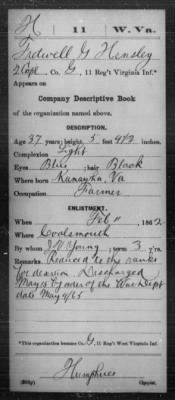 H | 11 | W. Va.
Tredwell G Hensley
2 Corpl, Co. G, 11 Reg't Virginia Inf.*
Appears on
Company Descriptive Book
of the organization named above.
DESCRIPTION.
Age 37 years; height 5 feet 9 1/2 inches.
Complexion Light
Eyes Blue; hair Black
Where born Kanawha, Va
Occupation Farmer
ENLISTMENT.
When Feb 11, 1862
Where Coalsmouth
By whom J. W. Young; term 3 y'rs.
Remarks: Reduced to the ranks
for desertion Discharged
May 15 by order of the War Dept
date May 4/65
*This organization became Co. G, 11 Reg't West Virginia Inf.
Humphries
Copyist.